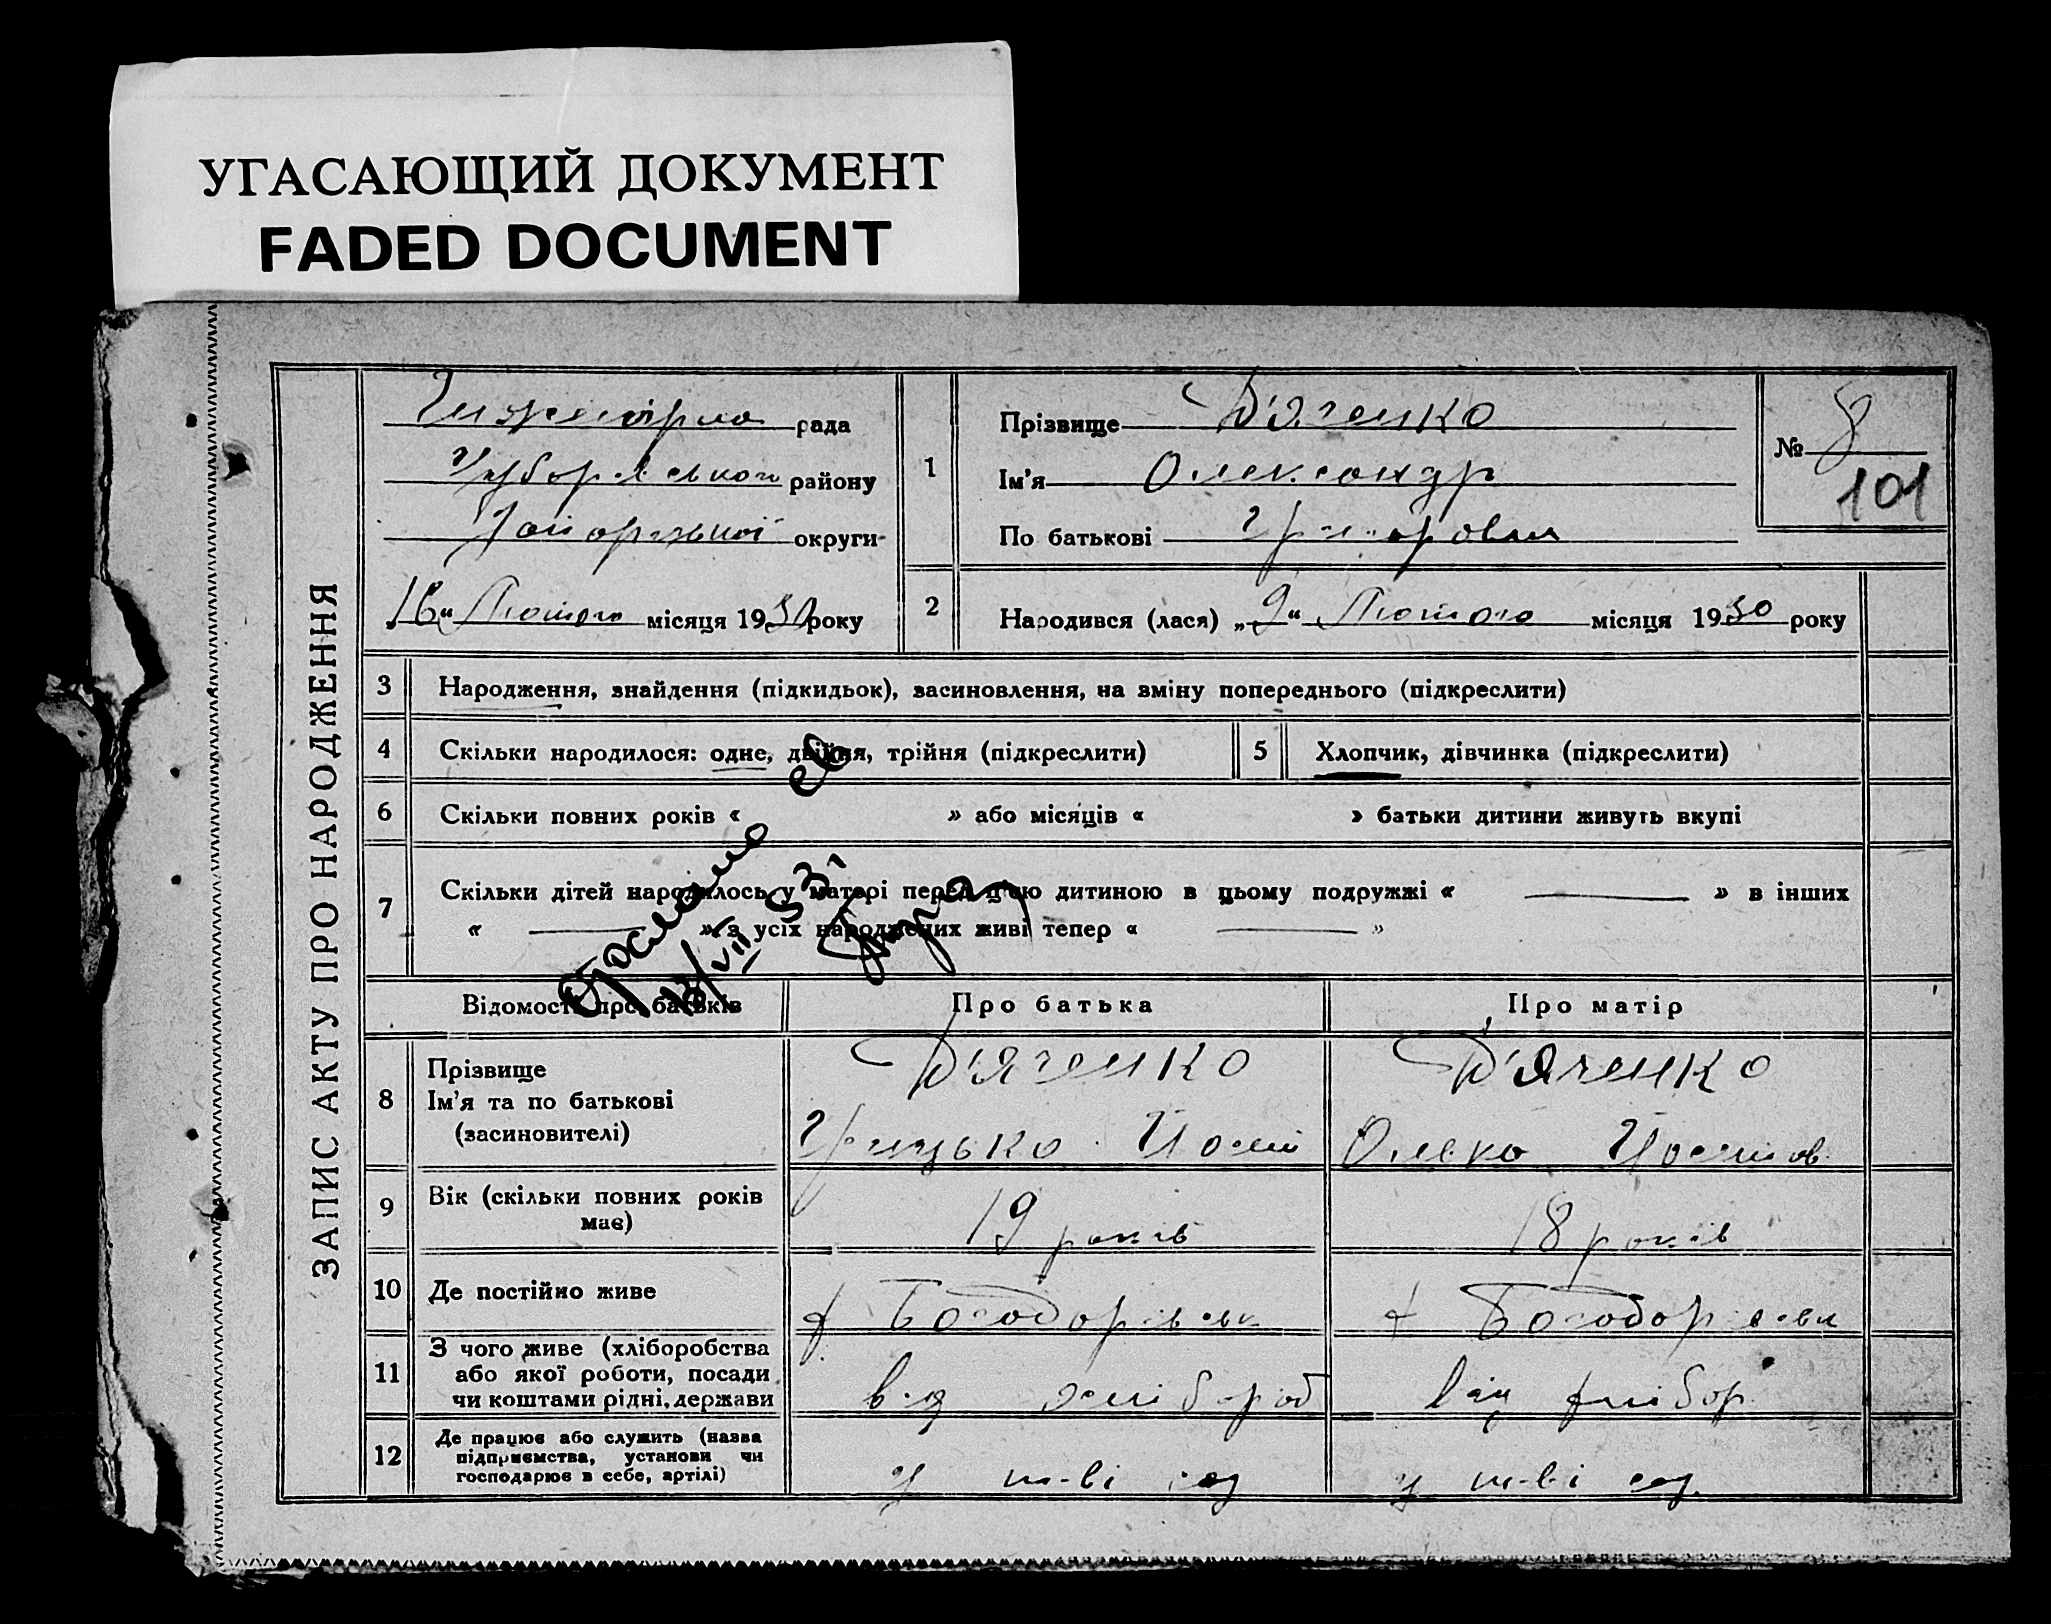 УГАСАЮЩИЙ ДОКУМЕНТ
FADED DOCUMENT
ЗАПИС АКТУ ПРО НАРОДЖЕННЯ
рада
району
округи
16 “ Лютого місяця 1930 року
1
Прізвище Д'яченко
Ім'я Олександр
По батькові Григорович
№ 8
101
2
Народився (лася) „ 9 “ Лютого місяця 1930 року
3 Народження, знайдення (підкидьок), засиновлення, на зміну попереднього (підкреслити)
4 Скільки народилося: одне, двійня, трійня (підкреслити)
5 Хлопчик, дівчинка (підкреслити)
6 Скільки повних років « » або місяців « » батьки дитини живуть вкупі
7 Скільки дітей народилось у матері перед цією дитиною в цьому подружжі « — » в інших
« — » з усіх народжених живі тепер « — »
13/VII 53
Відомості про батьків
Про батька
Про матір
8 Прізвище
Ім'я та по батькові
(засиновителі)
Д'яченко
Грицько Йосип
Д'яченко
Йосипов
9 Вік (скільки повних років
має)
19 років
18 років
10 Де постійно живе
х Богодорівськ
х Богодорівськ
11 З чого живе (хліборобства
або якої роботи, посади
чи коштами рідні, держави
від хлібороб
від хлібор
12 Де працює або служить (назва
підприємства, установи чи
господарює в себе, артілі)
у
у